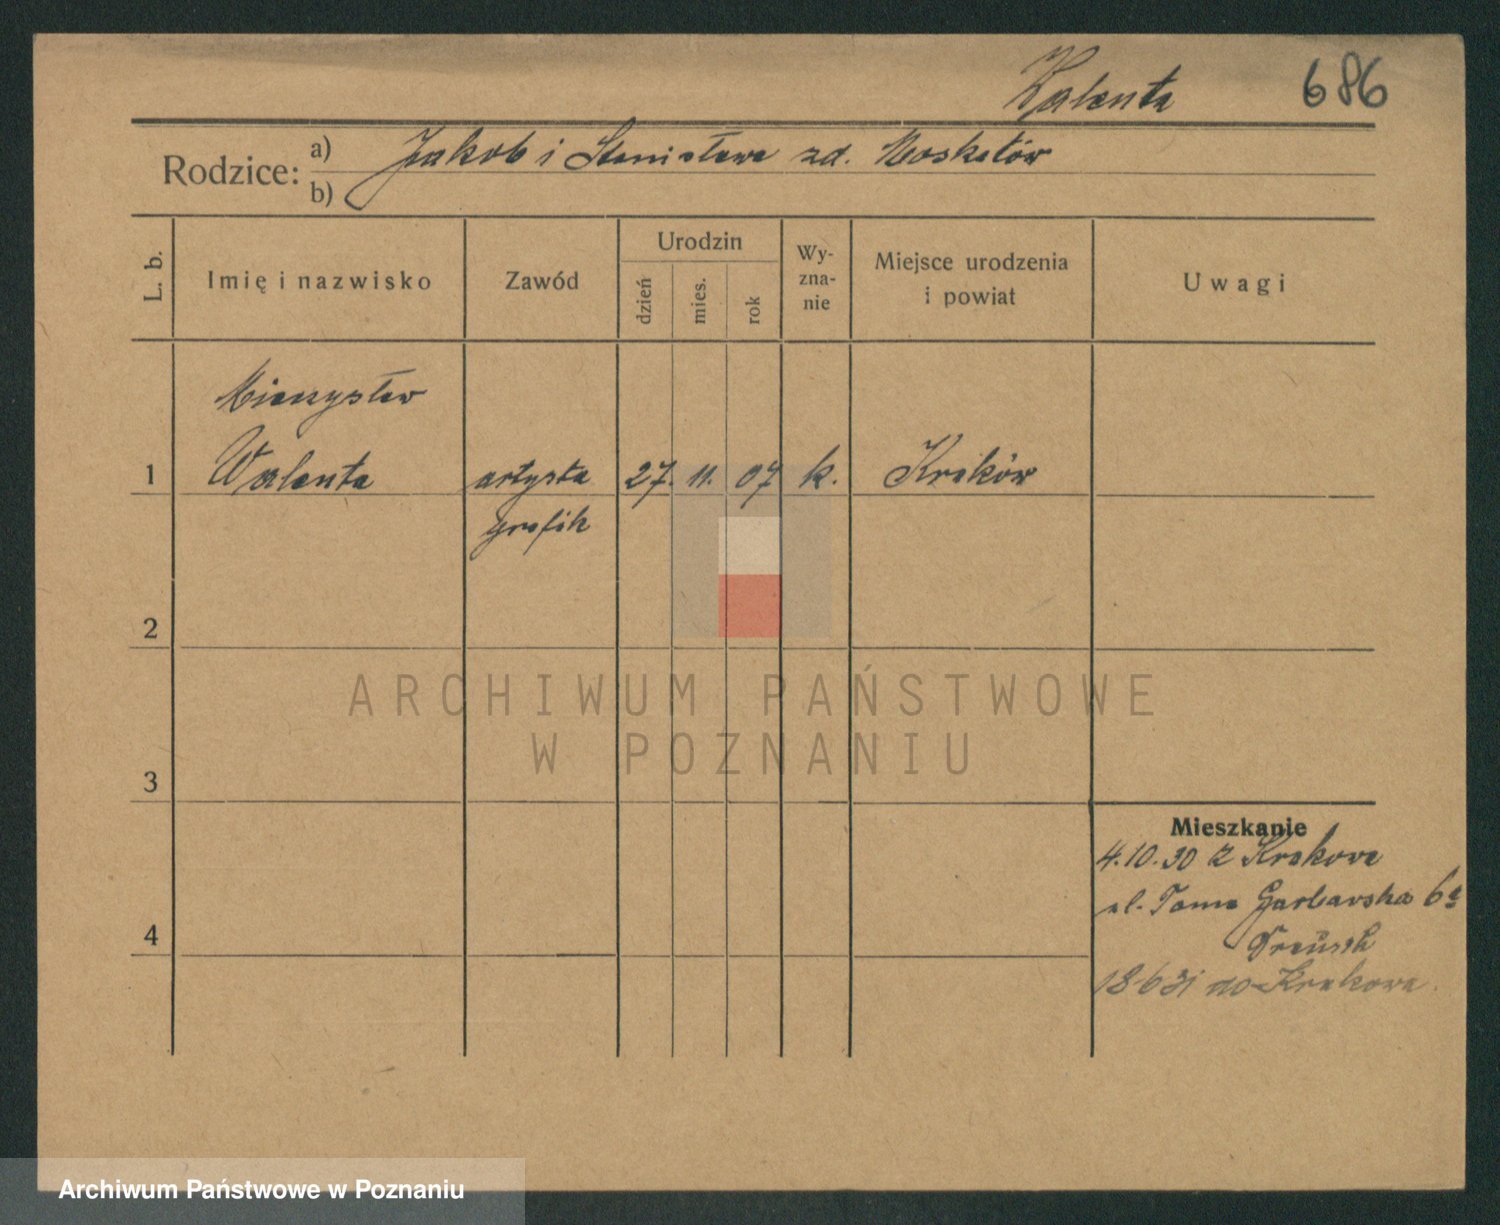 Walenta 686
Rodzice: a) Jakob i Stanisława zd. Moskalów
b)
L. b. Imię i nazwisko Zawód Urodzin Wy-
zna-
nie Miejsce urodzenia
i powiat Uwagi
dzień mies. rok
Mieczysław
1 Walenta artysta 27. 11. 07 k. Kraków
grafik
2
ARCHIWUM PAŃSTWOWE
W POZNANIU
3
Mieszkanie
4.10.30 z Krakowa
ul. Tama Garbarska 6a
4
18 6 31 do Krakowa.
Archiwum Państwowe w Poznaniu